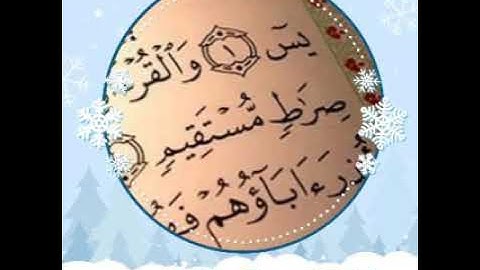 يسٓ ١ وَٱلْقُرْ
صِرَٰطٍ مُّسْتَقِيمٍ
ءَابَآؤُهُمْ